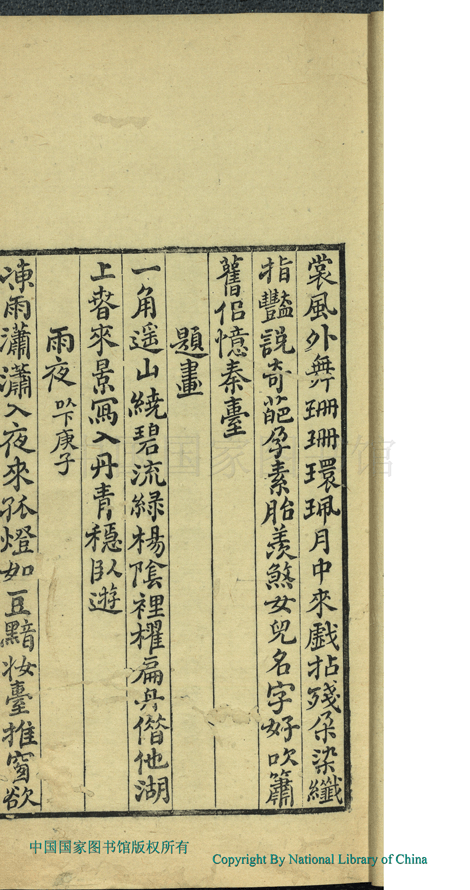 裳風外舞珊珊環珮月中來戲拈殘朵染纖
指豔說奇葩孕素胎羨煞女兒名字好吹簫
舊侶憶秦臺
題畫
一角遥山繞碧流綠楊陰裡櫂扁舟僭他湖
上旾來景寫入丹青穩臥遊
雨夜 以下庚子
凍雨瀟瀟入夜來孤燈如豆黯妆臺推窗欲
国家图书馆
中国国家图书馆版权所有
Copyright By National Library of China